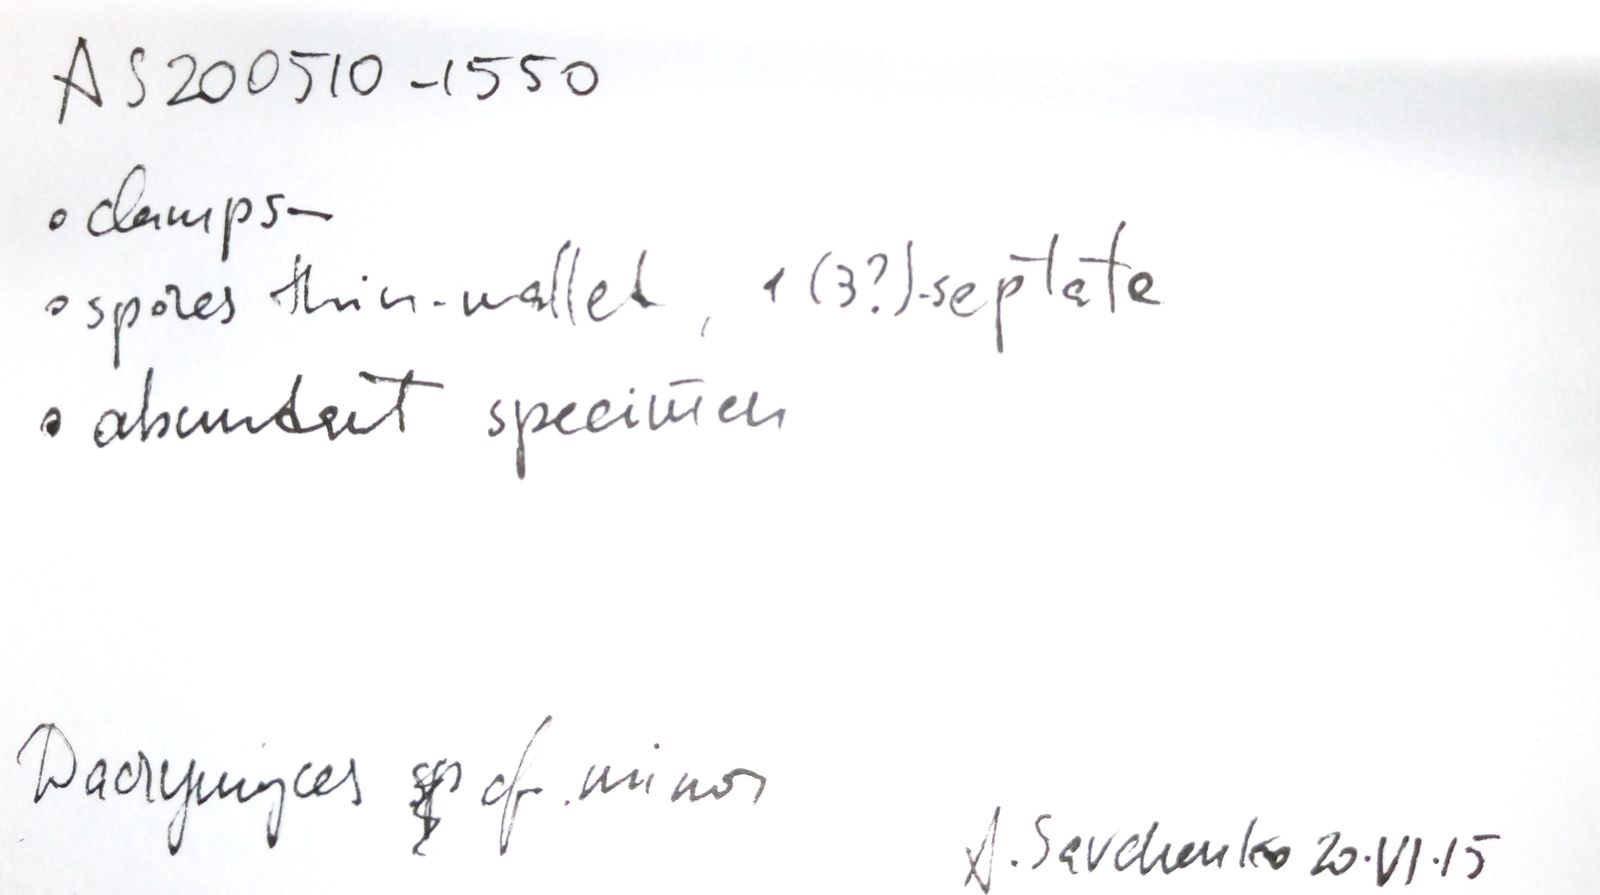 AS200510-1550
• clamps-
• spores thin-walled, 1(3?)-septate
• abundant specimen
Dacrymyces cf. minor
A. Savchenko 20.VI.15